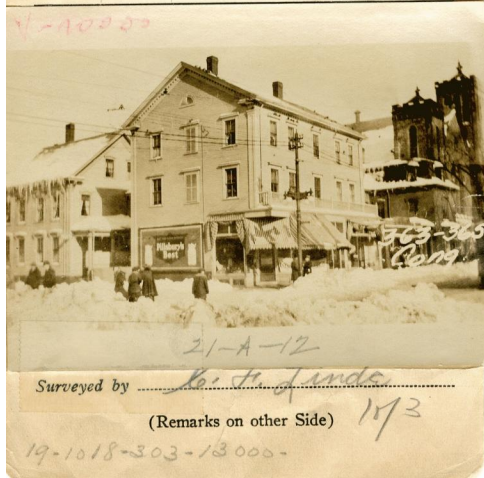 Pillsbury's
Best
363-365
Cong.
21-A-12
Surveyed by
(Remarks on other Side)
1 of 3
19-1018-303-13000-